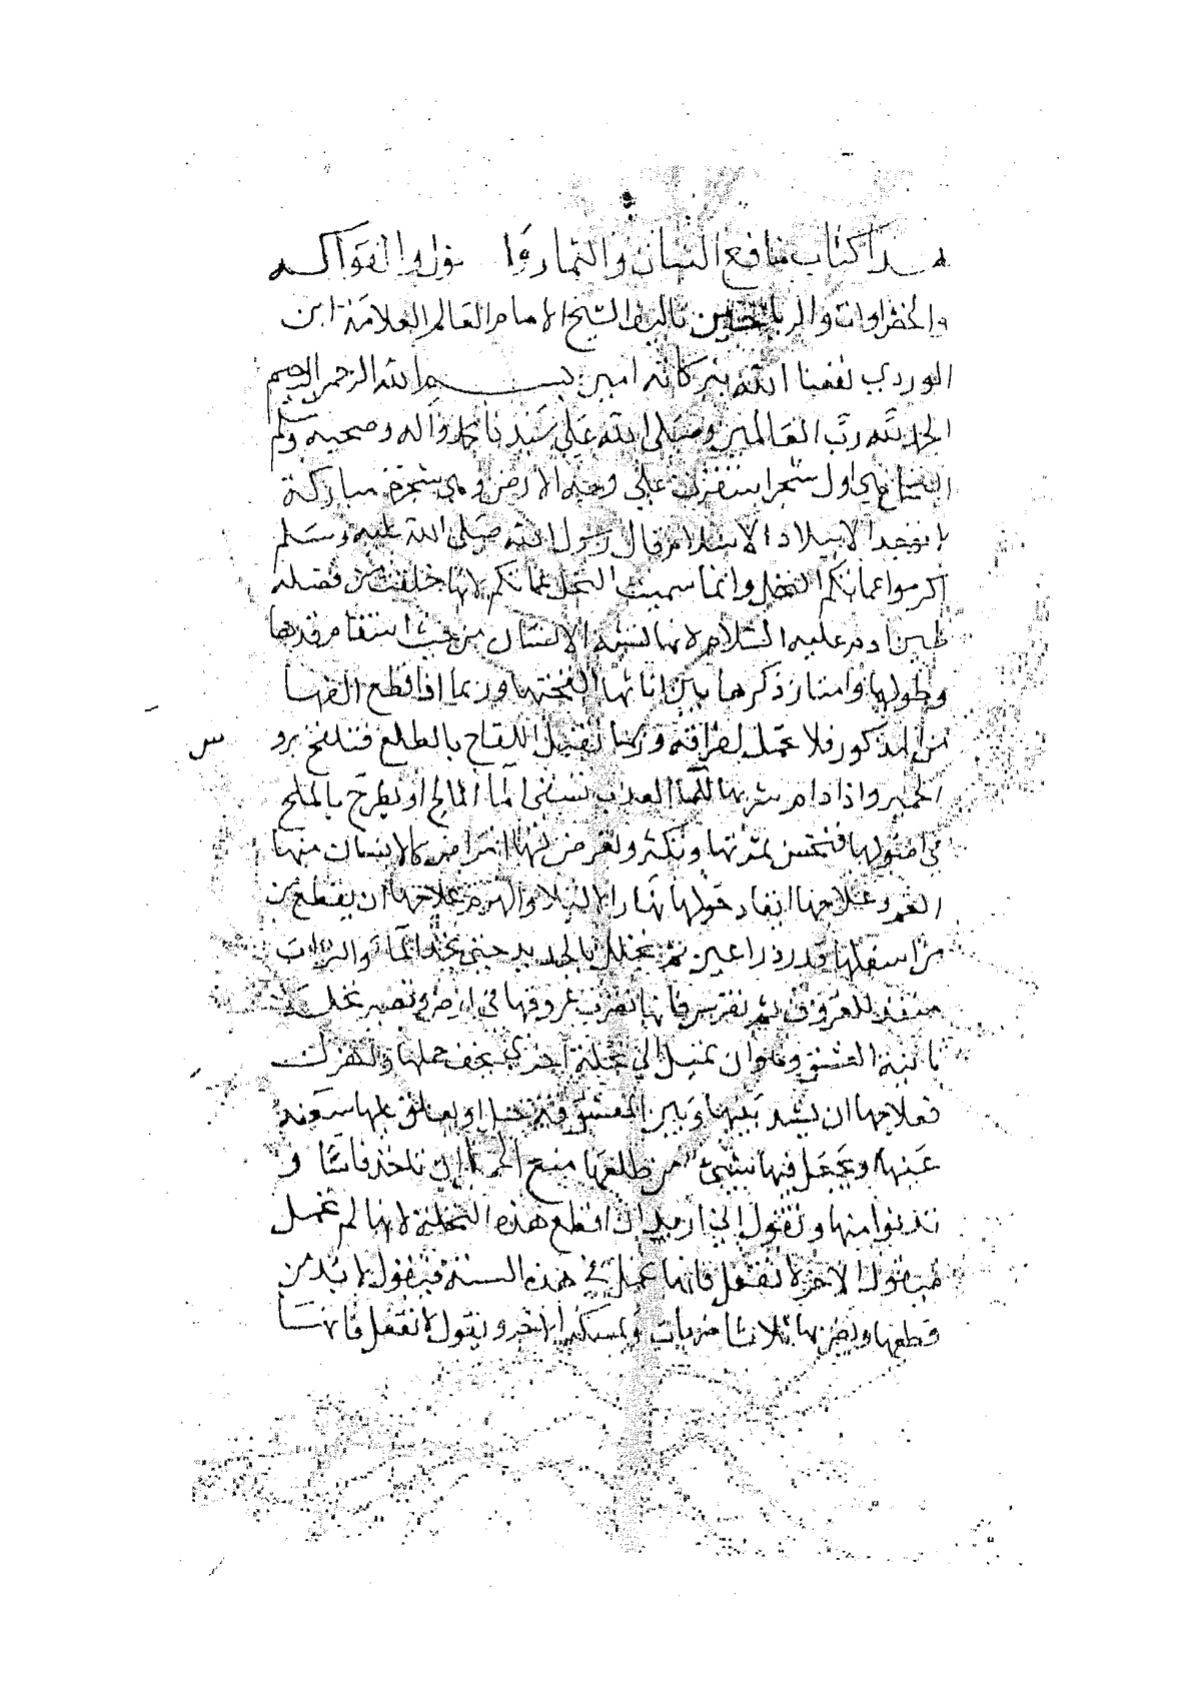 هذا كتاب منافع النبات والثمار والبقول والفواكه
والخضراوات والرياحين تاليف الشيخ الامام العالم العلامة ابن
الوردي نفعنا الله ببركاته امين بسم الله الرحمن الرحيم
الحمد لله رب العالمين وصلى الله على سيدنا محمد واله وصحبه وسلم
اول شجر استقرت على وجه الارض وهي شجرة مباركة
لا توجد الا ببلاد الاسلام قال رسول الله صلى الله عليه وسلم
اكرموا عماتكم النخل وانما سميت النخل عماتكم لانها خلقت من فضلة
طين ادم عليه السلام لانها تشبه الانسان من حيث استقام قدها
وطولها وامتاز ذكرها من اناثها وربما اذا قطع
من المذكور فلا تحمل لفراقه وربما اللقاح بالطلع
واذا دام شربها للما العذب تسقى الما المالح او يطرح بالملح
في اصولها فتحسن ثمرتها وتكثر ويعرض لها امراض كالانسان منها
الغم وعلاجها ايقاد حولها نارا ليلا والهرم علاجها ان يقطع من
من اسفلها قدر ذراعين ثم تخلل بالحديد حتى تجد الما والتراب
منفذ للعروق ثم تغرس فانها تضرب عروقها في ارض وتصير نخلة
ثانية العشق وهو ان تميل الى نخلة اخرى يخف حملها وتهزل
فعلاجها ان يشد بينها وبين المعشوقة بحبل او يعلق عليها سعفة
عنها ويجعل فيها شيئ من طلعها منع الحمل ان تاخذ فاسا و
تدنوا منها وتقول اني اريد ان اقطع هذه النخلة لانها لم تحمل
فيقول الاخر لا تفعل فانها تحمل في هذه السنة فيقول لا بد من
قطعها ويضربها ثلاثا ضربات ويمسكه الاخر ويقول لا تفعل فانها